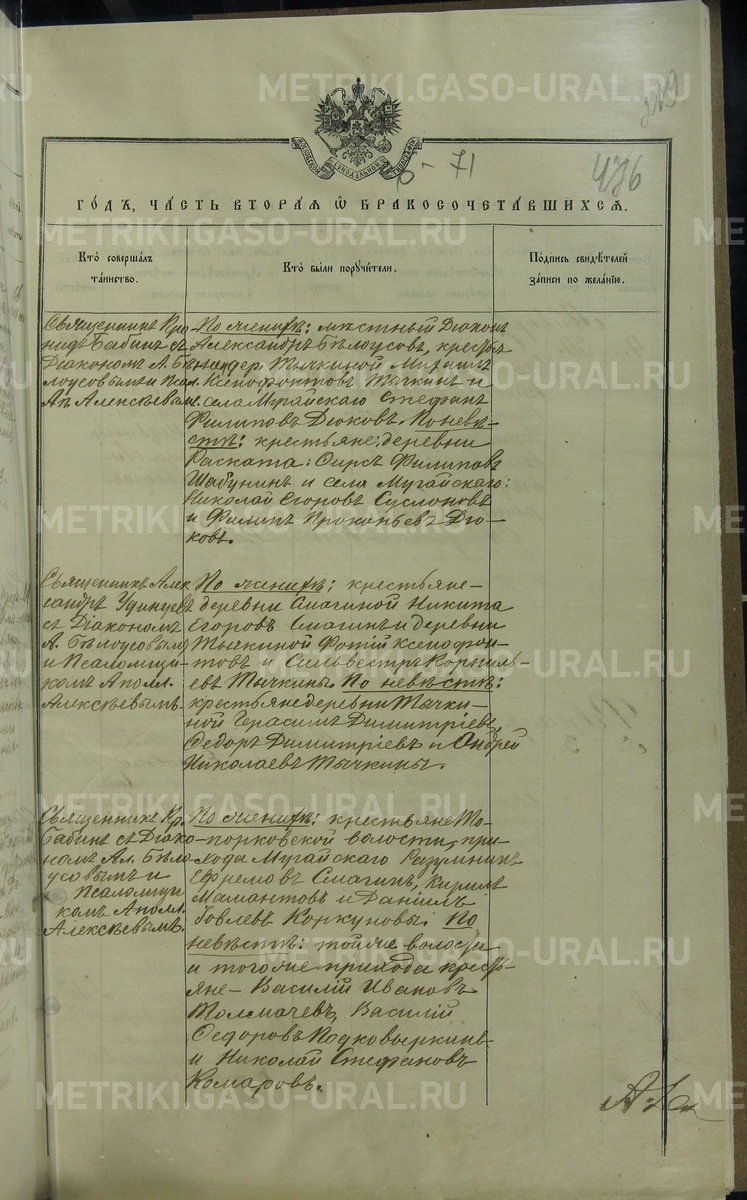 METRIKI.GASO-URAL.RU
219
МОСКОВСКОЙ СИНОДАЛЬНОЙ ТИПОГРАФІИ
71
476
ГОДЪ, ЧАСТЬ ВТОРАЯ Ѡ БРАКОСОЧЕТАВШИХСЯ.
Кто совершалъ таинство.
Кто были поручители.
Подпись свидѣтелей записи по желанію.
Священникъ
Бабинъ съ
Діакономъ А. Бѣ-
лоусовымъ и Псал.
Ап. Алексѣевым.
По женихѣ: мѣстный Діаконъ
Александръ Бѣлоусовъ, кресть.
дер. Тычкиной Михаилъ
Ксенофонтовъ Тычкинъ и
села Мугайскаго Стефанъ
Филиповъ Дюковъ. По невѣ-
стѣ: крестьяне: деревни
Раската: Сирсъ Филиповъ
Шабунинъ и села Мугайскаго:
Николай Егоровъ Суслоновъ
и Филипъ Прокопьевъ Дю-
ковъ.
Священникъ Алек
сандръ Удинцевъ
съ Діакономъ
А. Бѣлоусовымъ
и Псаломщи-
комъ Аполл.
Алексѣевымъ.
По женихѣ: крестьяне-
деревни Смагиной Никита
Егоровъ Смагинъ и деревни
Тычкиной Фотій Ксенофон-
товъ и Сильвестръ Корниль-
евъ Тычкины. По невѣстѣ:
крестьяне деревни Тычки-
ной Герасимъ Димитріевъ,
Ѳедоръ Димитріевъ и Андрей
Николаевъ Тычкины.
Священникъ Кр.
Бабинъ съ Діако-
номъ Ал. Бѣло
усовымъ и
Псаломщи
комъ Аполл.
Алексѣевымъ.
По женихѣ: крестьяне То-
порковской волости, при-
хода Мугайскаго Разумникъ
Ефремовъ Смагинъ, Кирилъ
Мамантовъ и Даніилъ
Іовлевъ Коркуновы. По
невѣстѣ: тойже волости
и тогоже прихода кресть-
яне- Василій Ивановъ
Толмачевъ, Василій
Ѳедоровъ Подковыркинъ
и Николай Стефановъ
Комаровъ.